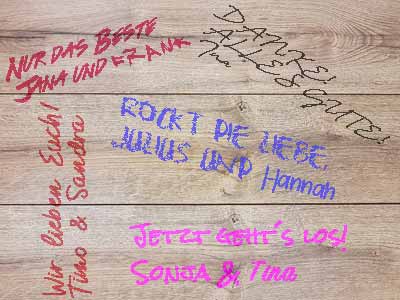 NUR DAS BESTE
JANA UND FRANK
DANKE!
ALLES GUTE!
Tina
ROCKT DIE LIEBE,
JULIUS UND Hannah
Wir lieben Euch!
Timo & Sandra
JETZT GEHT'S LOS!
SONJA & Tina